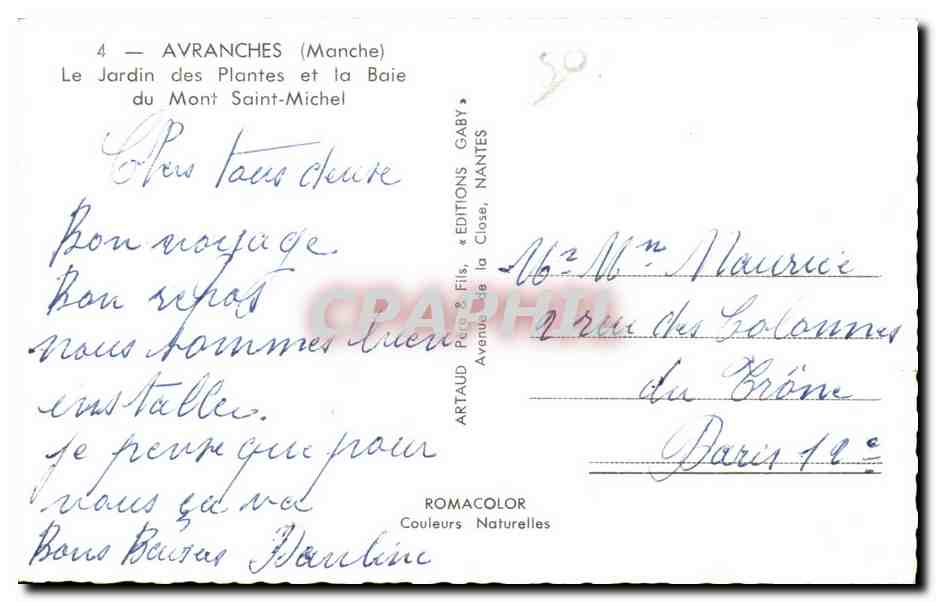 4 — AVRANCHES (Manche)
Le Jardin des Plantes et la Baie
du Mont Saint-Michel
50
Chers tous deux
Bon voyage
Bon repos
nous sommes bien
installer.
je pense que pour
vous ça va
Bons Baisers Pauline
ARTAUD Père & Fils, « EDITIONS GABY »
Avenue de la Close, NANTES
CPAPHIL
Mr Mme Maurice
2 rue des Colonnes
du Trône
Paris 12e
ROMACOLOR
Couleurs Naturelles